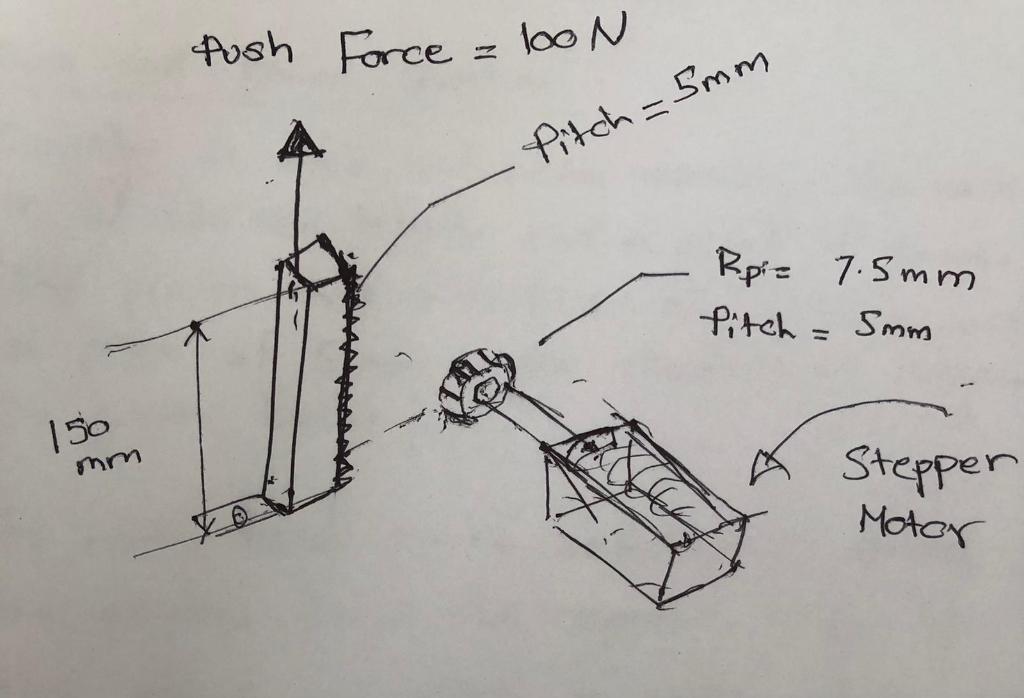 Push Force = 100N
Pitch = 5mm
Rpi= 7.5mm
Pitch = 5mm
150
mm
Stepper
Motor